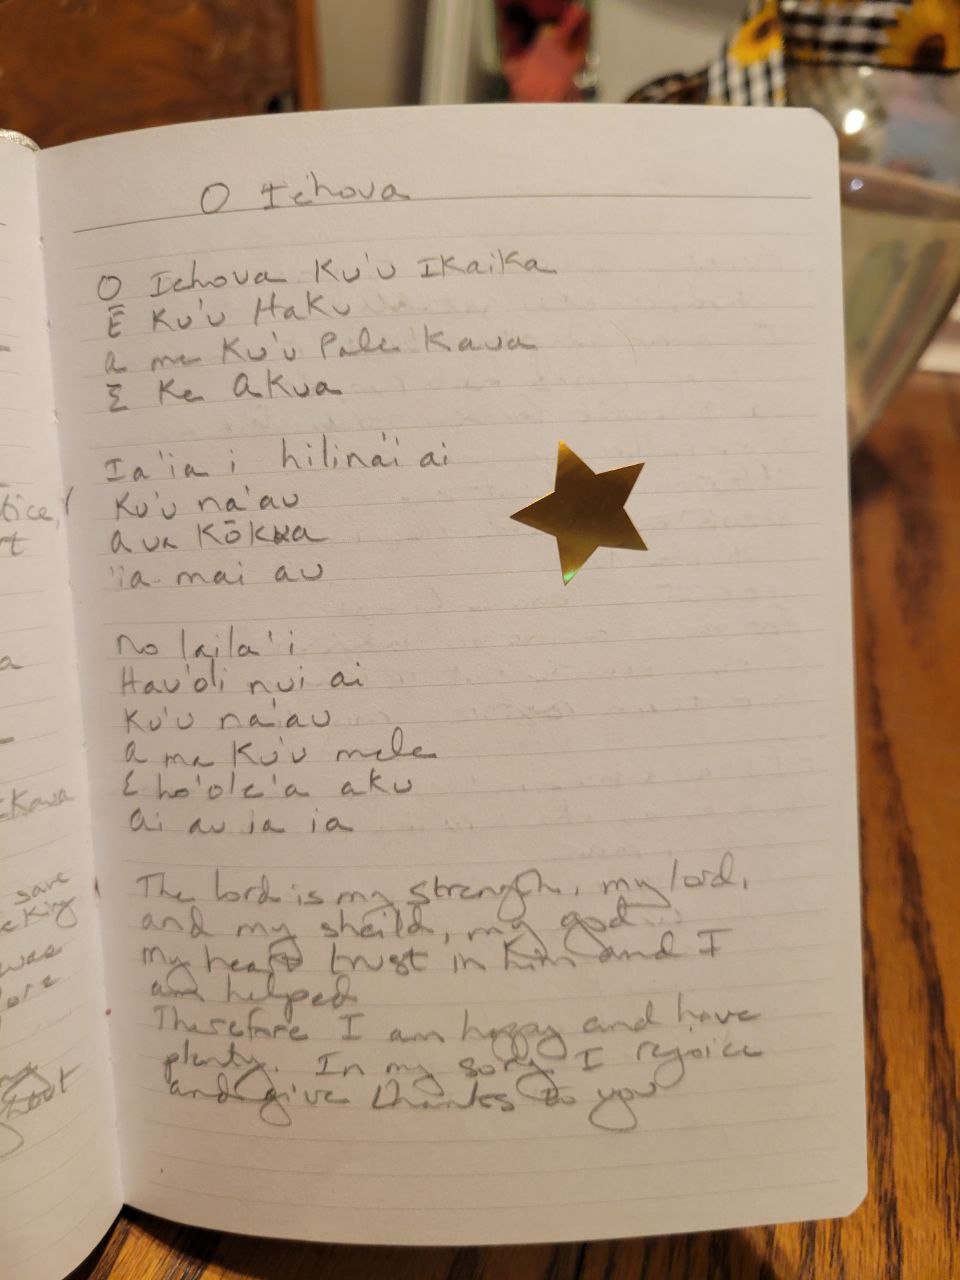 O Iehova
O Iehova Ku'u Ikaika
Ē Ku'u Haku
a me Ku'u Pale Kaua
E Ke Akua
Ia 'ia i hilina'i ai
Ku'u na'au
a ua Kōkua
'ia mai au
No laila 'i
Hau'oli nui ai
Ku'u na'au
a me Ku'u mele
E ho'ole'a aku
ai au ia ia
The lord is my strength, my lord,
and my sheild, my god
my heart trust in him and I
am helped
Therefore I am happy and have
plenty. In my song I rejoice
and give thanks to you
tice,
rt
a
Kaua
save
eking
was